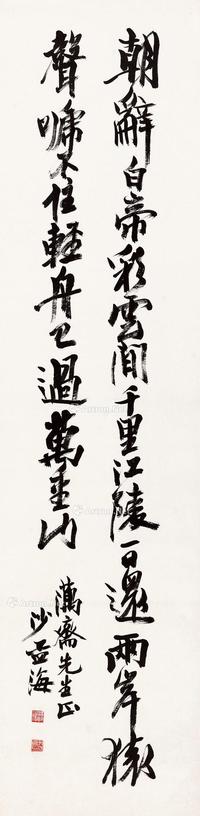 朝辭白帝彩雲間千里江陵一日還兩岸猿
聲啼不住輕舟已過萬重山
先生正
沙孟海